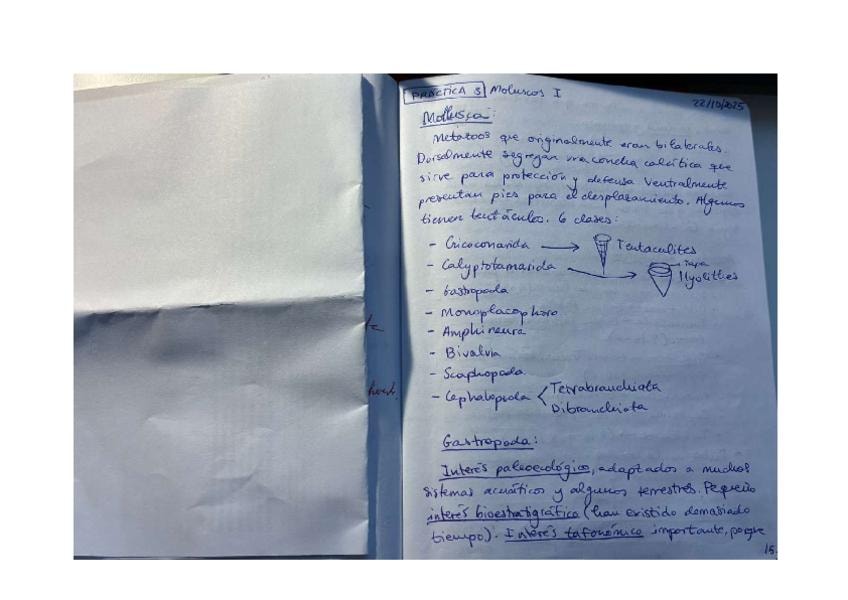 PRÁCTICA 3 Moluscos I
22/10/2025
Mollusca:
Metazoos que originalmente eran bilaterales.
Dorsalmente segregan una concha calcítica que
sirve para protección y defensa. Ventralmente
presentan pies para el desplazamiento. Algunos
tienen tentáculos. 6 clases:
- Cricoconarida → Tentaculites
- Calyptotamarida → Hyolithes
Tapa
- Gastropoda
- Monoplacophora
- Amphineura
- Bivalvia
- Scaphopoda
- Cephalopoda < Tetrabranchiata
Dibranchiata
Gastropoda:
Interés paleoecológico, adaptados a muchos
sistemas acuáticos y algunos terrestres. Pequeño
interés bioestratigráfico (han existido demasiado
tiempo). Interés tafonómico importante, porque
15